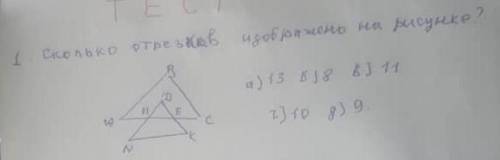 ТЕСТ
1. Сколько отрезков изображено на рисунке?
B
а) 13 б) 8 в) 11
D
M E
W C
г) 10 д) 9.
K
N